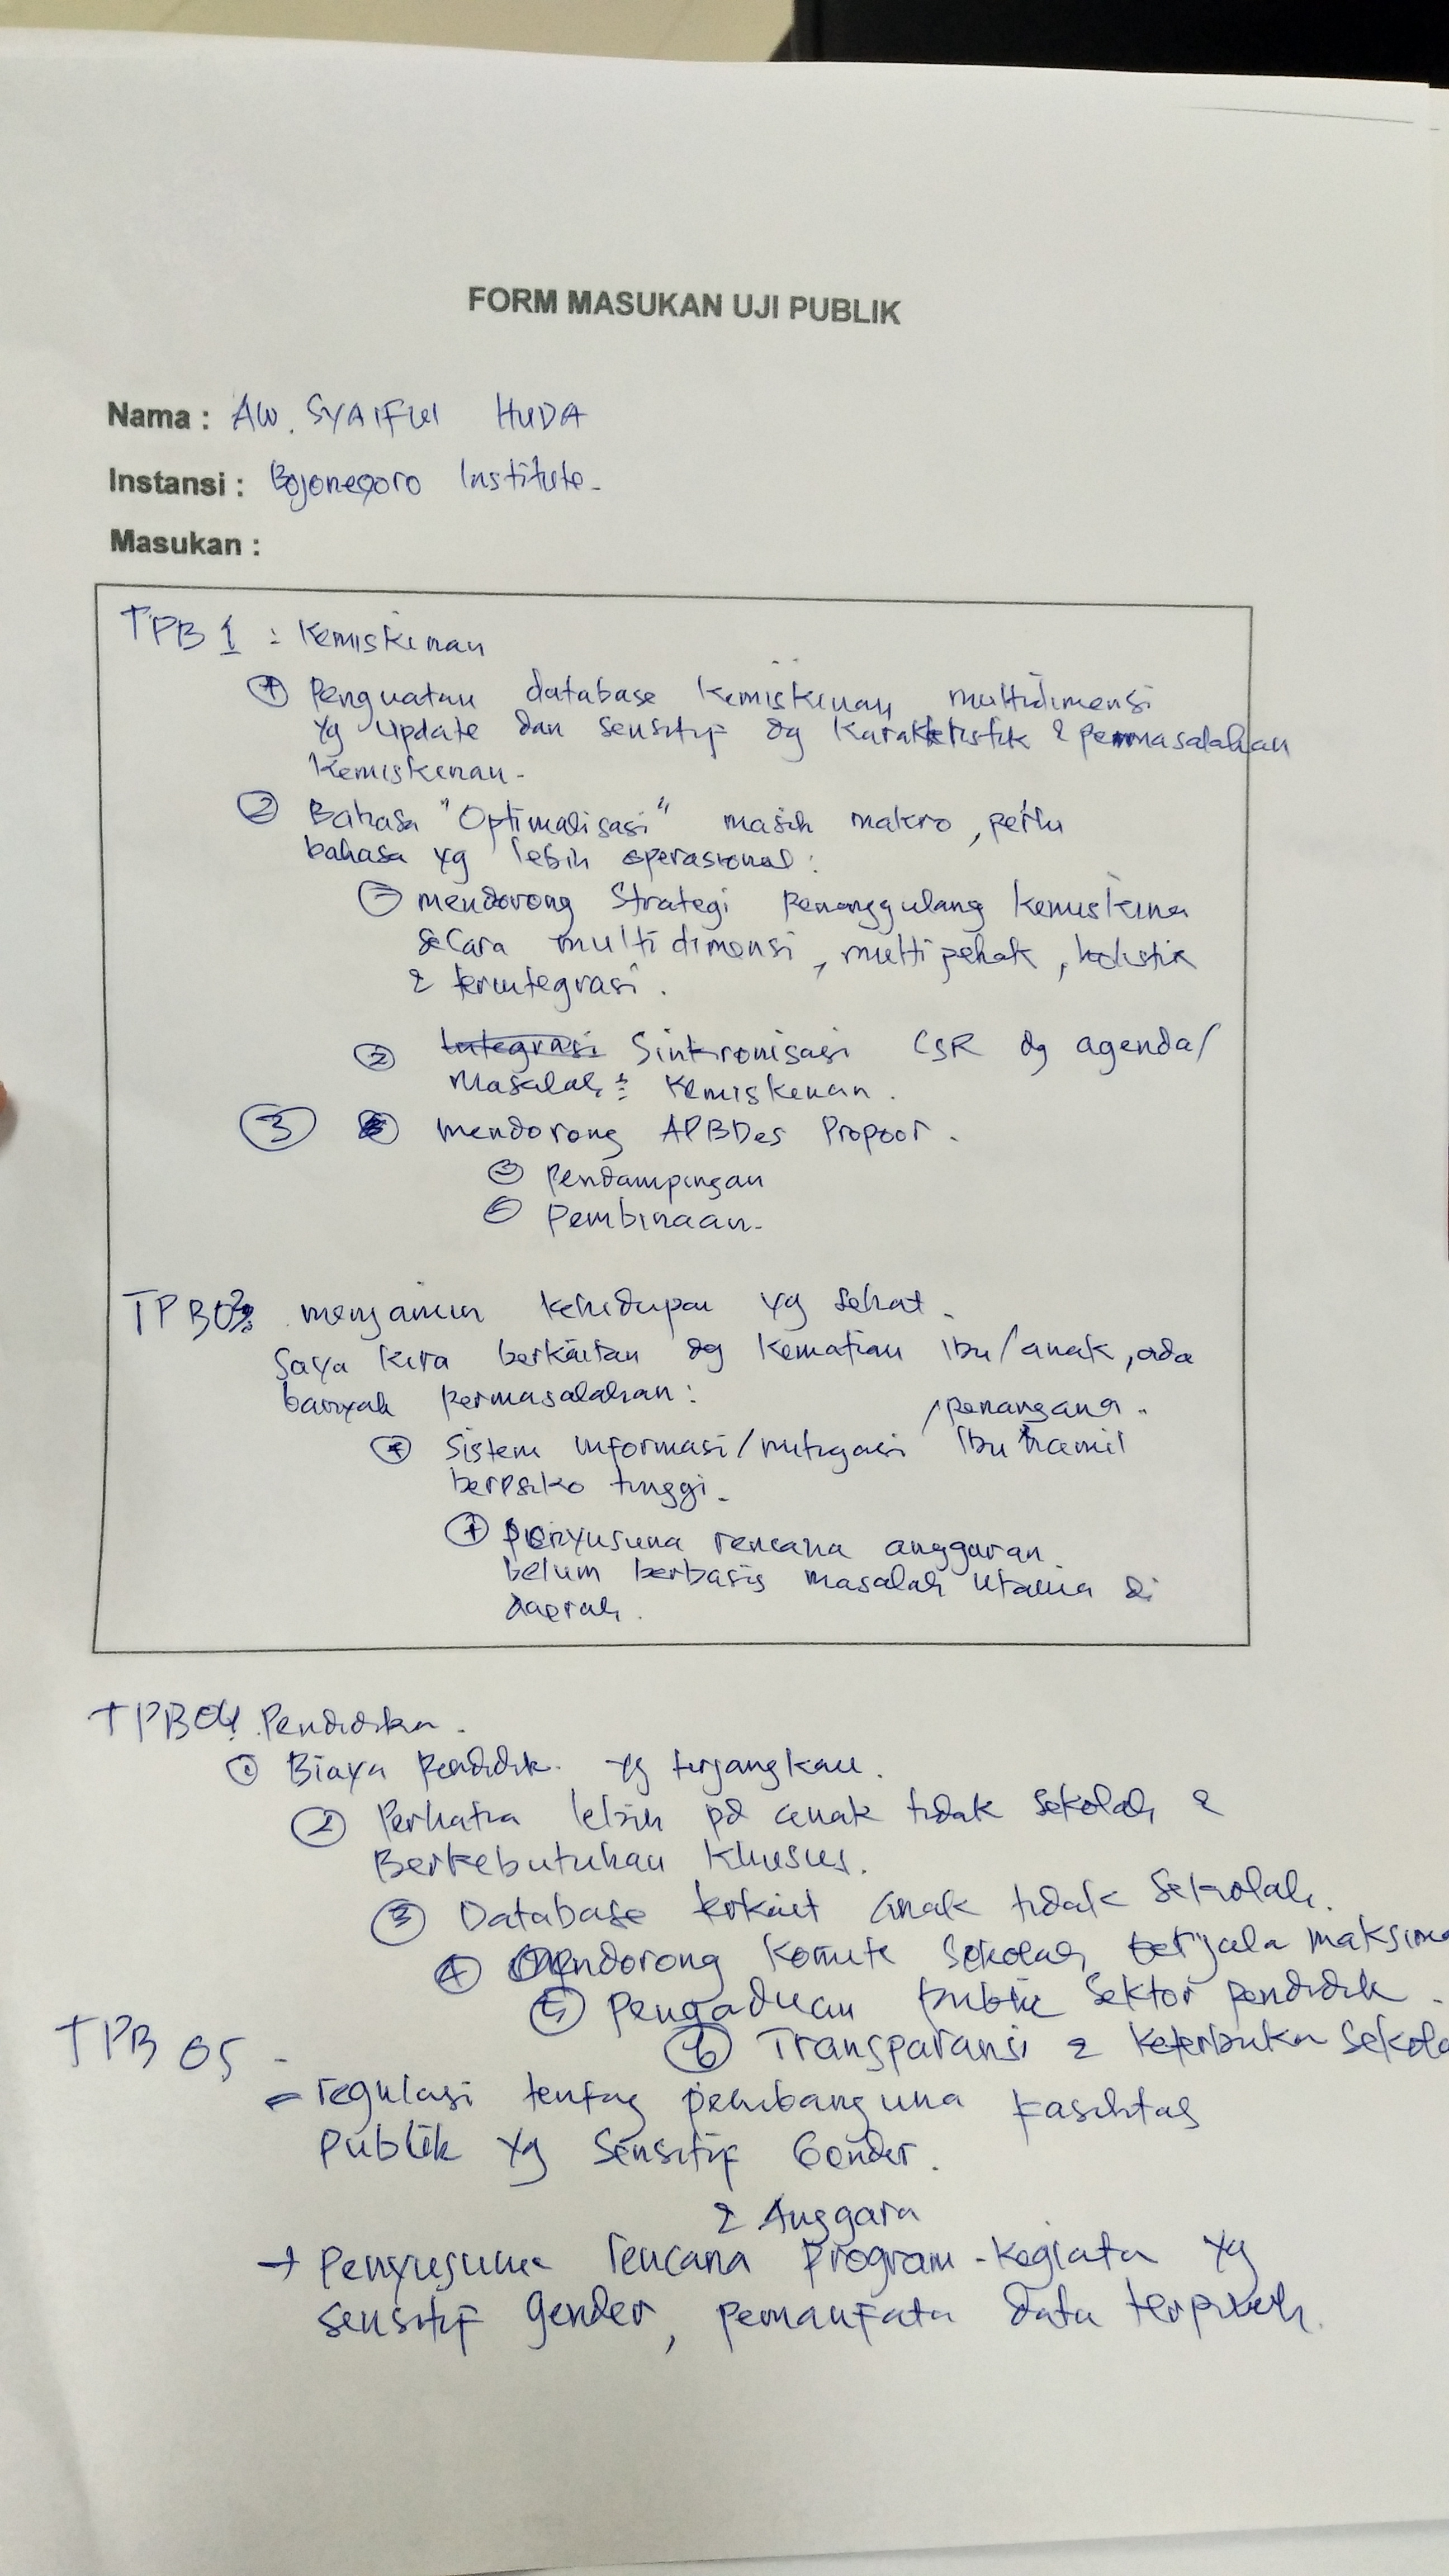 FORM MASUKAN UJI PUBLIK
Nama : AW. SYAIFUL HUDA
Instansi : Bojonegoro Institute-
Masukan :
TPB 1 : Kemiskinan
① Penguatan database kemiskinan multidimensi
yg update dan sensitif dg karakteristik & permasalahan
kemiskinan-
② Bahasa "Optimalisasi" masih makro, perlu
bahasa yg lebih operasional :
mendorong Strategi Penanggulang kemiskina
secara multi dimensi, multi pihak, holistik
& terintegrasi.
② Integrasi Sinkronisasi CSR dg agenda/
masalah² kemiskinan.
③ mendorong APBDes Propoor.
Pendampingan
Pembinaan-
TPB 03. menjamin kehidupan yg sehat.
Saya kira berkaitan dg kematian ibu/anak, ada
banyak permasalahan :
, penangana..
Sistem informasi/mitigasi ibu hamil
berisiko tinggi-
penyusuna rencana anggaran
belum berbasis masalah utama di
daerah.
TPB 04. Pendidika.
① Biaya Pendidik. yg terjangkau.
② Perhatia lebih pd anak tidak sekolah &
Berkebutuhan khusus.
③ Database terkait anak tidak sekolah.
④ mendorong komite sekolah berjala maksima
⑤ Pengaduan publik sektor pendidik.
TPB 05 -
⑥ Transparansi & keterbuka sekola
- regulasi tentag pembanguna fasilitas
publik yg sensitif Gender.
& Anggara
→ Penyusuna rencana program-kegiata yg
sensitif gender, pemanfaata data terpilah.